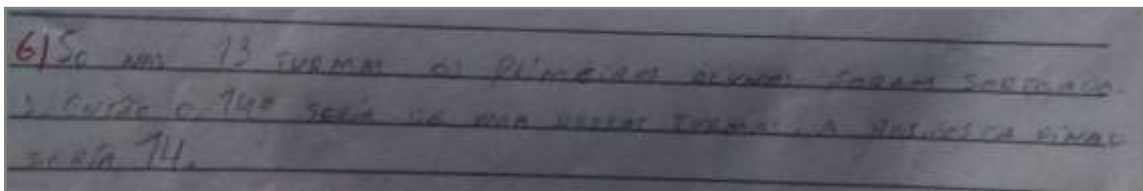 6) Se nas 13 turmas os primeiros alunos foram sorteado-
s, então o 14º seria de uma dessas turmas. A resposta final
seria 14.